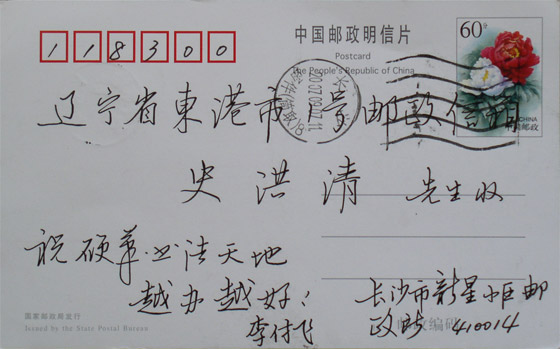 118300
中国邮政明信片
Postcard
The People's Republic of China
60分
CHINA
中国邮政
辽宁省東港市1号邮政信箱
史洪清 先生收
祝硬筆书法天地
越办越好!
李付飞
长沙市新星小区邮
政所 410014
邮政编码
国家邮政局发行
Issued by the State Postal Bureau